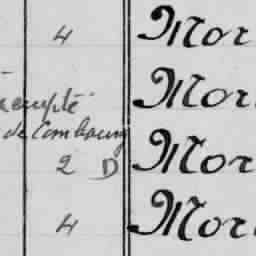 4 Mor
Mor
de Combourg
2 D Mor
4 Mor